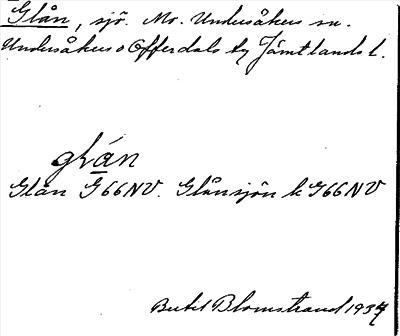 Glån, sjö. Mr. Undersåkers sn.
Undersåkers o Offerdals tg Jämtlands l.
glán
Glån G66NV. Glånsjön k G66NV
Bertil Blomstrand 1937